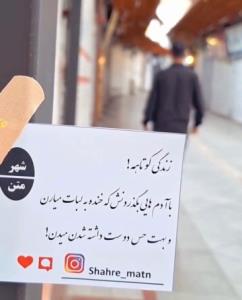 زندگی کوتاهه!
با آدم هایی بگذرونش که خنده به لبات میارن
و بهت حس دوست داشته شدن میدن!
شهر
متن
Shahre_matn